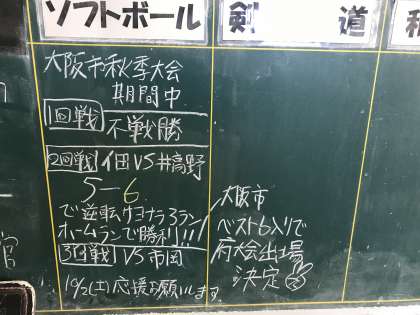 ソフトボール
大阪市秋季大会
期間中
1回戦 不戦勝
2回戦 VS 井高野
5-6
で逆転サヨナラ3ラン
ホームランで勝利!!!
3回戦 VS 市岡
10/2(土)応援お願いします。
剣道
大阪市
ベスト6入りで
府大会出場
決定